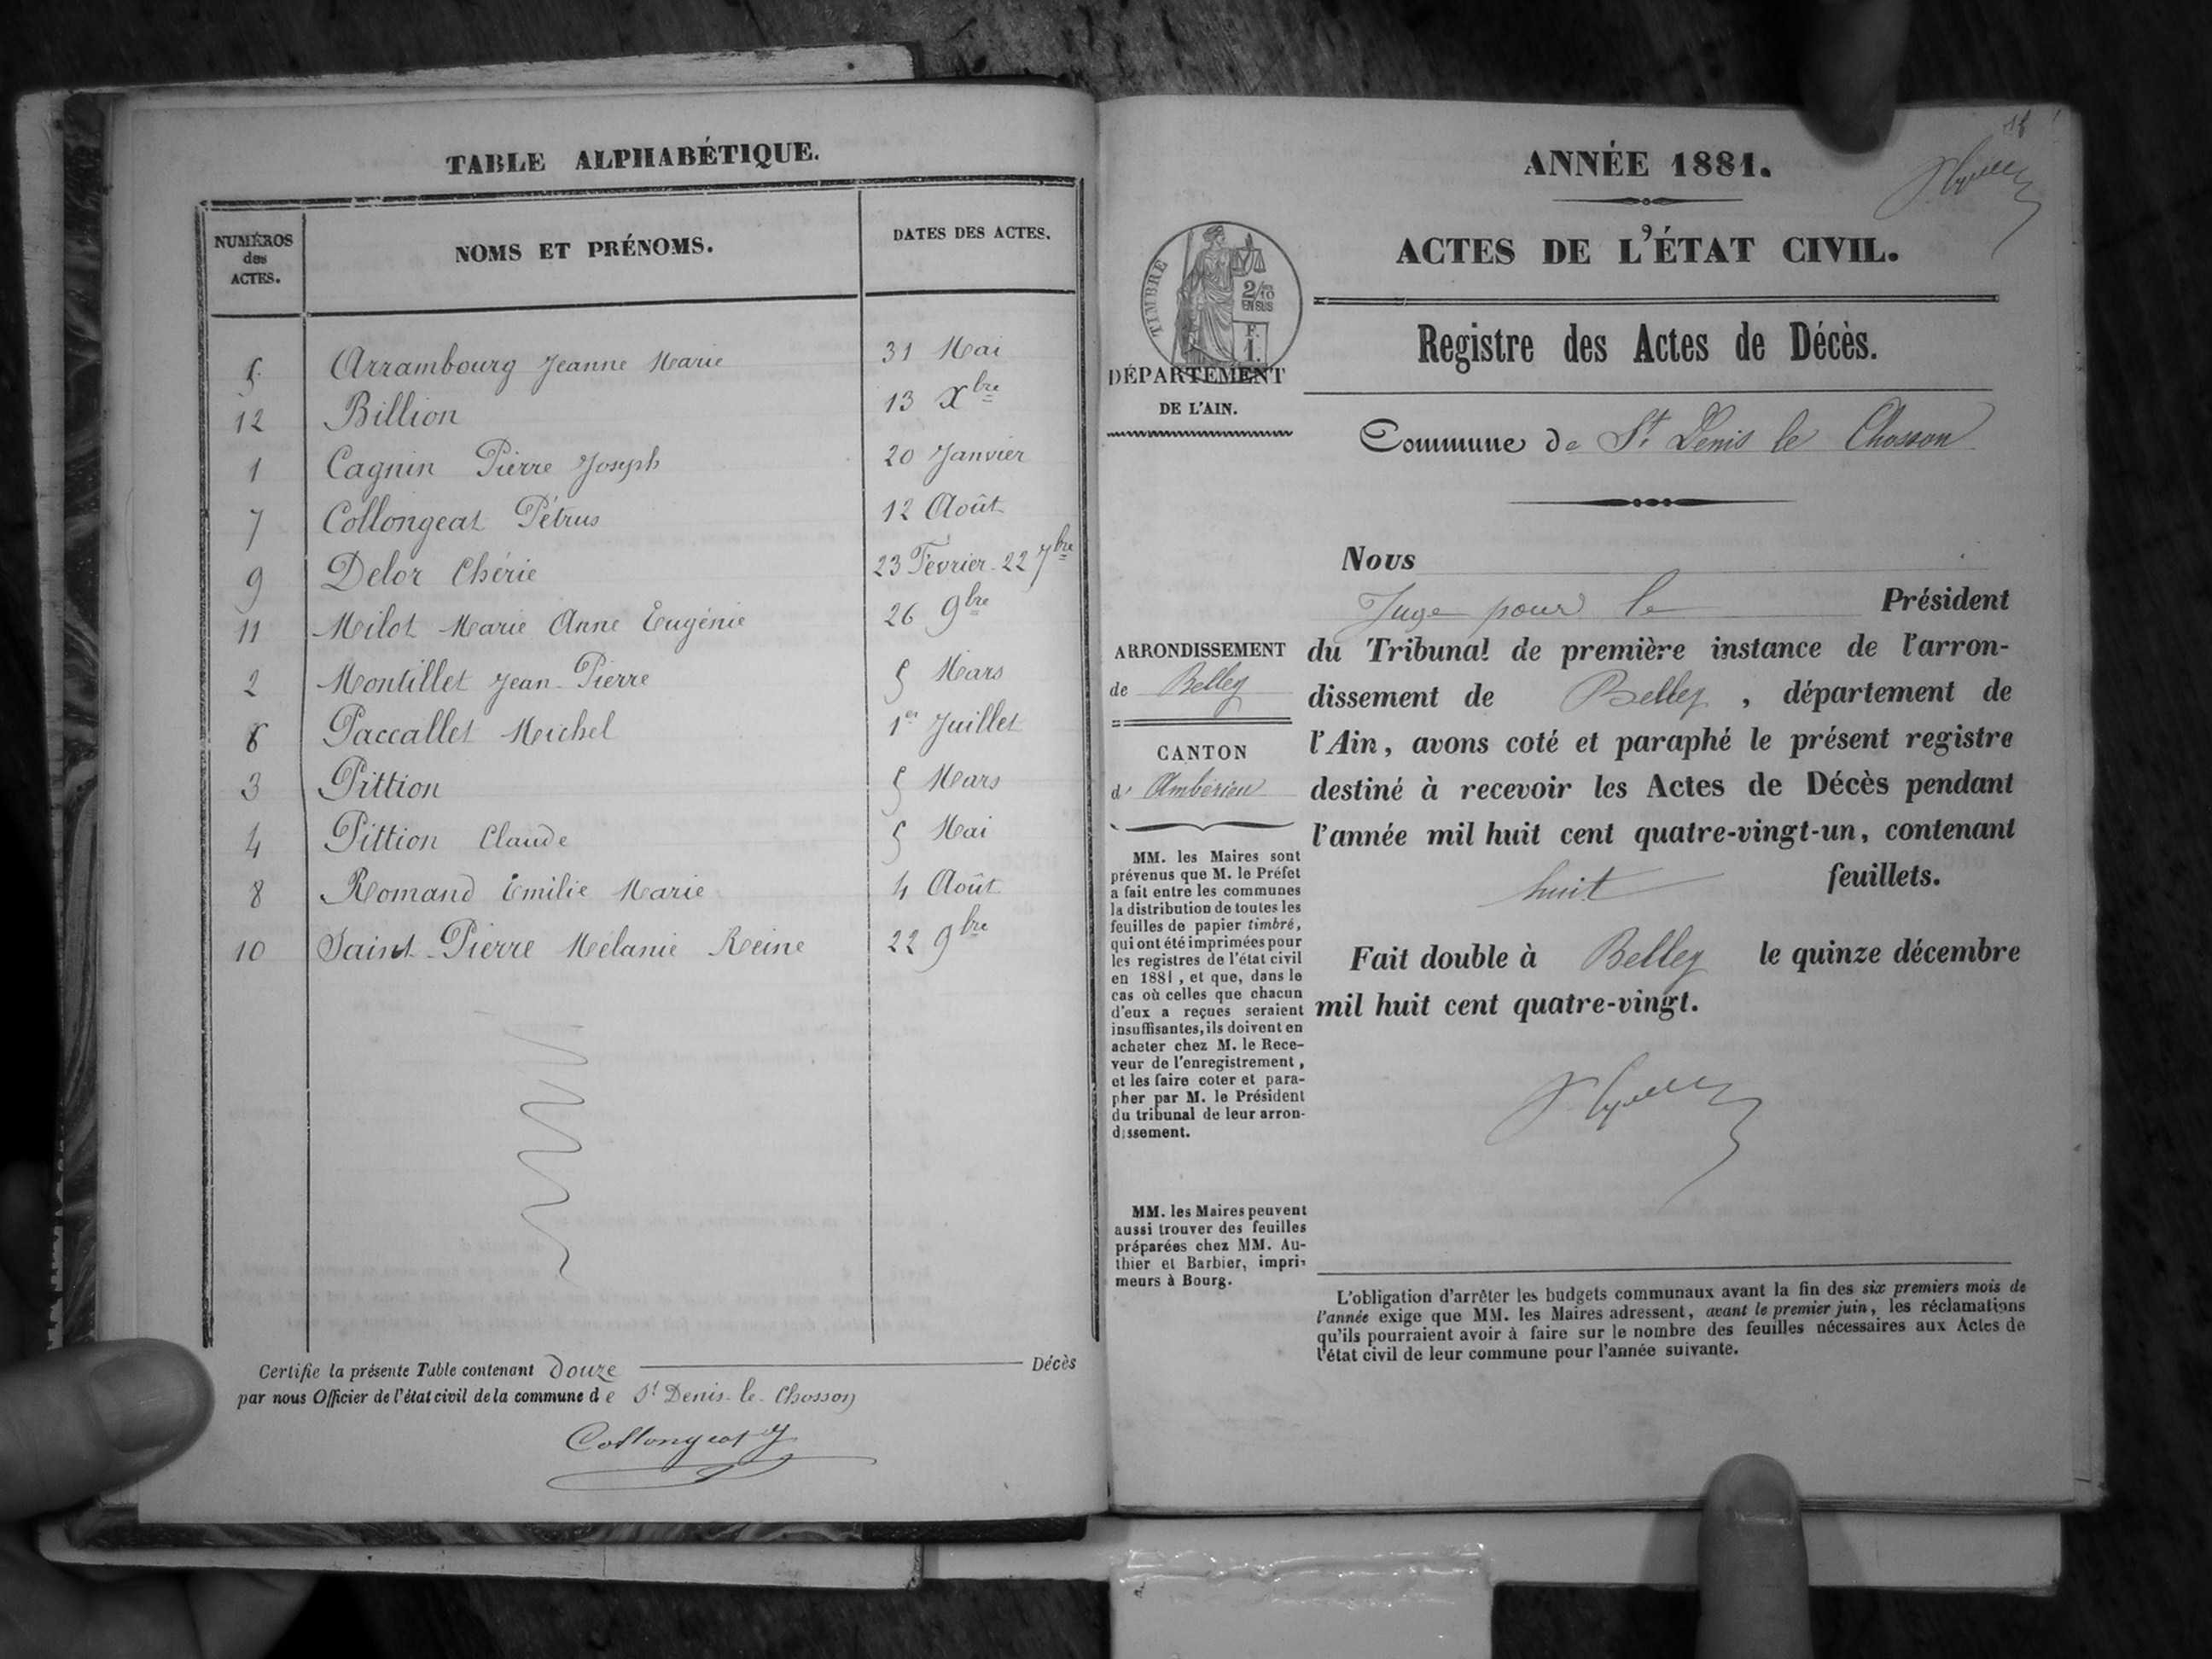 TABLE ALPHABÉTIQUE.
NUMÉROS des ACTES. NOMS ET PRÉNOMS. DATES DES ACTES.
5 Arrambourg Jeanne Marie 31 Mai
12 Billion 13 Xbre
1 Cagnin Pierre Joseph 20 Janvier
7 Collongeat Pétrus 12 Août
9 Delor Chérie 23 Février - 22 7bre
11 Milot Marie Anne Eugénie 26 9bre
2 Montillet Jean-Pierre 5 Mars
6 Paccallet Michel 1er Juillet
3 Pittion 5 Mars
4 Pittion Claude 5 Mai
8 Romand Emilie Marie 4 Août
10 Saint-Pierre Mélanie Reine 22 9bre
Certifie la présente Table contenant douze Décès
par nous Officier de l'état civil de la commune de St Denis-le-Chosson
Collongeat
ANNÉE 1881.
ACTES DE L'ÉTAT CIVIL.
TIMBRE
2/10
EN SUS
F.
1.
DÉPARTEMENT
DE L'AIN.
Registre des Actes de Décès.
Commune de St Denis le Chosson
Nous
Juge pour le Président
du Tribunal de première instance de l'arron-
dissement de Belley, département de
l'Ain, avons coté et paraphé le présent registre
destiné à recevoir les Actes de Décès pendant
l'année mil huit cent quatre-vingt-un, contenant
huit feuillets.
Fait double à Belley le quinze décembre
mil huit cent quatre-vingt.
ARRONDISSEMENT
de Belley
CANTON
d'Ambérieu
MM. les Maires sont
prévenus que M. le Préfet
a fait entre les communes
la distribution de toutes les
feuilles de papier timbré,
qui ont été imprimées pour
les registres de l'état civil
en 1881, et que, dans le
cas où celles que chacun
d'eux a reçues seraient
insuffisantes, ils doivent en
acheter chez M. le Rece-
veur de l'enregistrement,
et les faire coter et para-
pher par M. le Président
du tribunal de leur arron-
dissement.
MM. les Maires peuvent
aussi trouver des feuilles
préparées chez MM. Au-
thier et Barbier, impri-
meurs à Bourg.
L'obligation d'arrêter les budgets communaux avant la fin des six premiers mois de
l'année exige que MM. les Maires adressent, avant le premier juin, les réclamations
qu'ils pourraient avoir à faire sur le nombre des feuilles nécessaires aux Actes de
l'état civil de leur commune pour l'année suivante.